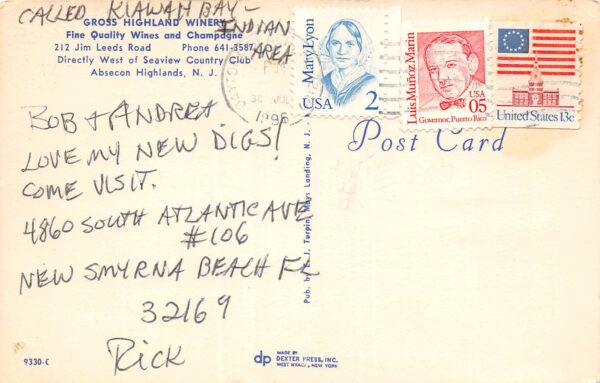 CALLED KIAWAH BAY -
INDIAN
AREA
GROSS HIGHLAND WINERY
Fine Quality Wines and Champagne
212 Jim Leeds Road Phone 641-3587
Directly West of Seaview Country Club
Absecon Highlands, N. J.
30 JUL
1996
Mary Lyon
USA 2
Luis Muñoz Marin
USA
05
Governor, Puerto Rico
United States 13c
Post Card
BOB & ANDREA
LOVE MY NEW DIGS!
COME VISIT.
4860 SOUTH ATLANTIC AVE
#106
NEW SMYRNA BEACH FL
32169
RICK
Pub. by J. Turpin, Mays Landing, N. J.
9330-C
dp MADE BY
DEXTER PRESS, INC.
WEST NYACK, NEW YORK